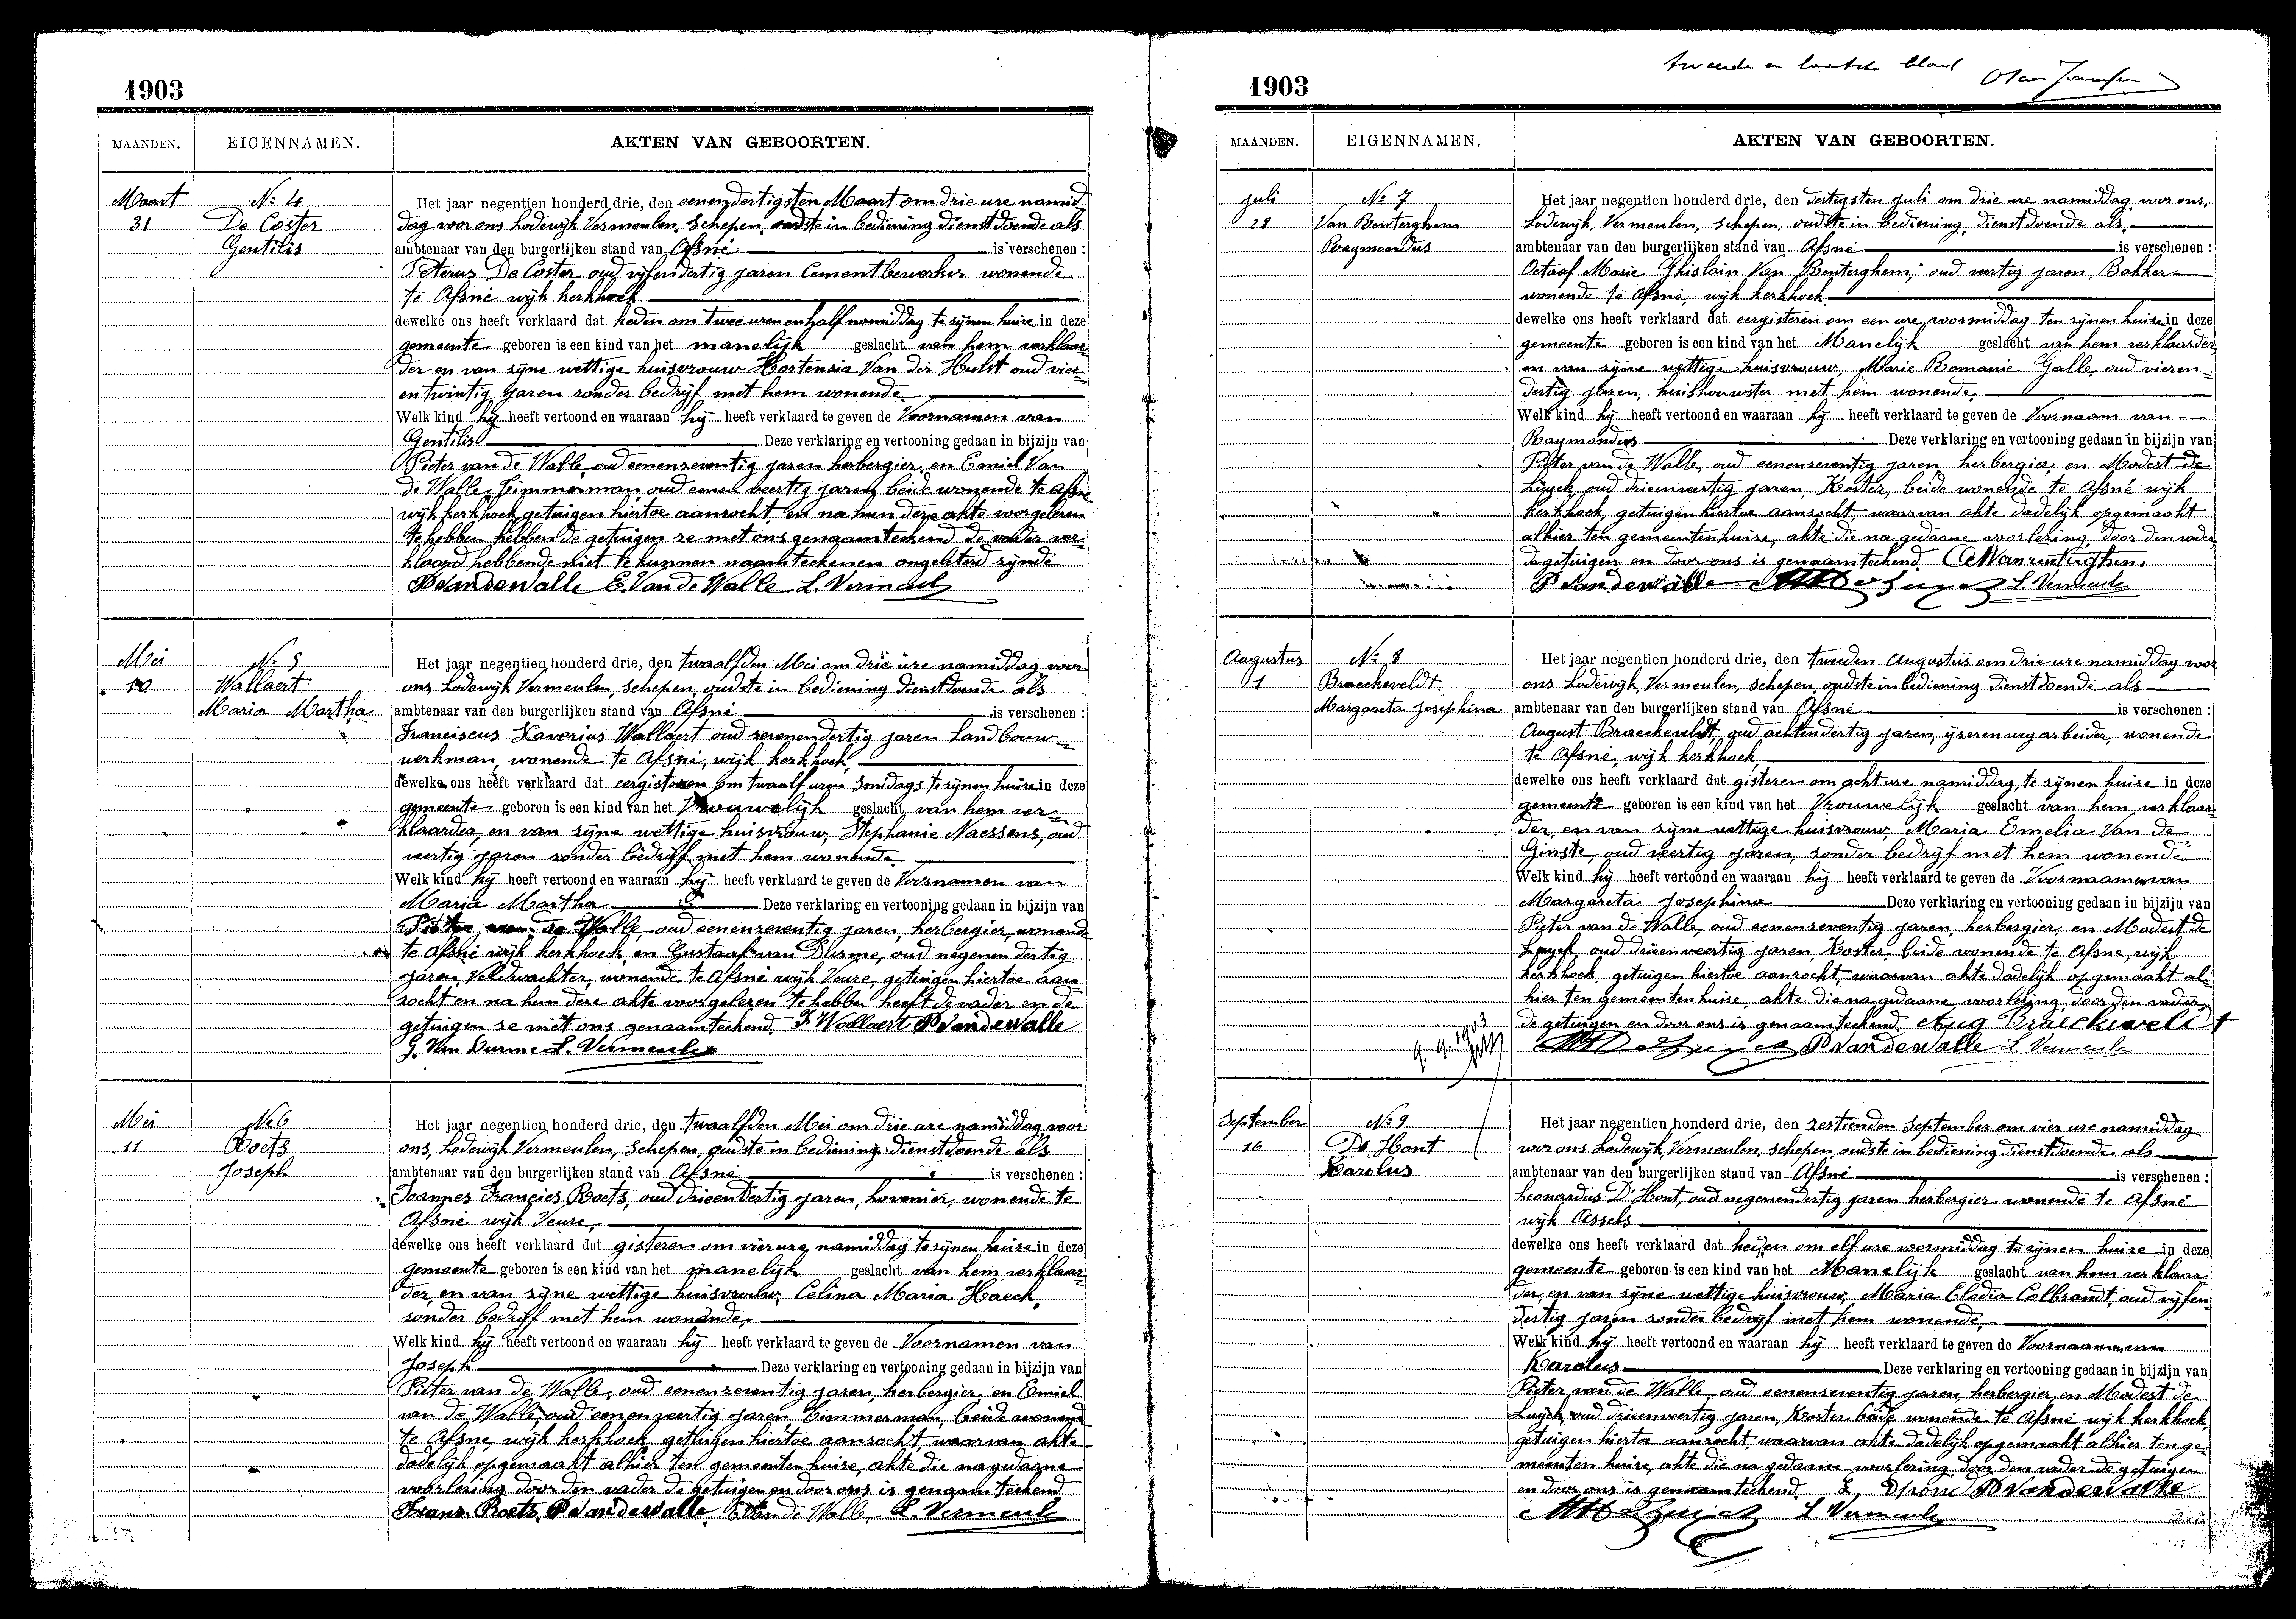 1903
MAANDEN. EIGENNAMEN. AKTEN VAN GEBOORTEN.
Maart
31
Nº 4
De Coster
Gentilis
Het jaar negentien honderd drie, den eenendertigsten Maart om drie ure namid
dag voor ons Lodewijk Vermeulen, Schepen, oudste in bediening dienstdoende als
ambtenaar van den burgerlijken stand van Afsné is verschenen :
Peterus De Coster oud vijfendertig jaren Cementbewerker wonende
te Afsné wijk kerkhoek
dewelke ons heeft verklaard dat heden om twee uren en half namiddag te zijnen huize in deze
gemeente geboren is een kind van het manelijk geslacht van hem verklaar
der en van zijne wettige huisvrouw Hortensia Van der Hulst oud vier
entwintig jaren zonder bedrijf met hem wonende
Welk kind hij heeft vertoond en waaraan hij heeft verklaard te geven de Voornamen van
Gentilis Deze verklaring en vertooning gedaan in bijzijn van
Pieter van de Walle, oud eenenzeventig jaren herbergier, en Emiel Van
de Walle, Timmerman, oud eenen veertig jaren, beide wonende te Afsne
wijk kerkhoek, getuigen hiertoe aanzocht, en na hun deze akte voorgelezen
te hebben hebben de getuigen ze met ons genaamteekend de vader ver
klaard hebbende niet te kunnen naamteekenen ongeletterd zijnde
P Vandewalle E. Van de Walle L. Vermeulen
Mei
10
Nº 5
Wallaert
Maria Martha
Het jaar negentien honderd drie, den twaalfden Mei om drie ure namiddag voor
ons Lodewijk Vermeulen, Schepen, oudste in bediening dienstdoende als
ambtenaar van den burgerlijken stand van Afsné is verschenen :
Franciscus Xaverius Wallaert oud zevenendertig jaren Landbouw
werkman, wonende te Afsné, wijk kerkhoek,
dewelke ons heeft verklaard dat eergisteren om twaalf uren smidags te zijnen huize in deze
gemeente geboren is een kind van het Vrouwelijk geslacht van hem ver
klaarder, en van zijne wettige huisvrouw, Stephanie Naessens, oud
veertig jaren zonder bedrijf met hem wonende
Welk kind hij heeft vertoond en waaraan hij heeft verklaard te geven de Voornamen van
Maria Martha Deze verklaring en vertooning gedaan in bijzijn van
Pieter van de Walle, oud eenenzeventig jaren, herbergier, wonende
te Afsné wijk kerkhoek, en Gustaaf van Durme, oud negenendertig
jaren, Veldwachter, wonende te Afsné wijk Veure, getuigen hiertoe aan
zocht en na hun deze akte voorgelezen te hebben heeft de vader en de
getuigen ze met ons genaamteekend. F Wallaert P Vandewalle
G. Van Durme L. Vermeulen
Mei
11
Nº 6
Roets
Joseph
Het jaar negentien honderd drie, den twaalfden Mei om drie ure namiddag, voor
ons, Lodewijk Vermeulen, Schepen, oudste in bediening dienstdoende als
ambtenaar van den burgerlijken stand van Afsné is verschenen :
Joannes Francies Roets, oud drieendertig jaren, hovenier, wonende te
Afsné wijk Veure,
dewelke ons heeft verklaard dat gisteren om vier ure namiddag te zijnen huize in deze
gemeente geboren is een kind van het manelijk geslacht van hem verklaar
der, en van zijne wettige huisvrouw, Celina Maria Haeck,
zonder bedrijf met hem wonende,
Welk kind hij heeft vertoond en waaraan hij heeft verklaard te geven de Voornamen van
Joseph Deze verklaring en vertooning gedaan in bijzijn van
Pieter van de Walle, oud eenenzeventig jaren, herbergier, en Emiel
van de Walle, oud eenenveertig jaren, Timmerman, beide wonend
te Afsné, wijk kerkhoek getuigen hiertoe aanzocht, waarvan akte
dadelijk opgemaakt alhier ten gemeenten huize, akte die na gedaane
voorlezing door den vader de getuigen en door ons is genaamteekend
Frans Roets P Vandewalle E Van de Walle L. Vermeulen
tweede en laatste blad
1903
MAANDEN. EIGENNAMEN. AKTEN VAN GEBOORTEN.
juli
28
Nº 7
Van Renterghem
Raymondus
Het jaar negentien honderd drie, den dertigsten juli om drie ure namiddag, voor ons,
Lodewijk, Vermeulen, schepen, oudste in bediening, dienstdoende als,
ambtenaar van den burgerlijken stand van Afsné is verschenen :
Octaaf Marie Ghislain Van Renterghem, oud veertig jaren, Bakker
wonende te Afsné, wijk kerkhoek
dewelke ons heeft verklaard dat eergisteren om een ure voormiddag ten zijnen huize in deze
gemeente geboren is een kind van het Manelijk geslacht van hem verklaarder
en van zijne wettige huisvrouw, Marie Romanie Galle, oud vieren
dertig jaren, huishouwster met hem wonende,
Welk kind hij heeft vertoond en waaraan hij heeft verklaard te geven de Voornaam van
Raymondus Deze verklaring en vertooning gedaan in bijzijn van
Pieter van de Walle, oud eenenzeventig jaren, herbergier, en Modest de
Luyck, oud drieenveertig jaren, Koster, beide wonende te Afsné wijk
kerkhoek, getuigen hiertoe aanzocht, waarvan akte dadelijk opgemaakt
alhier ten gemeentenhuize, akte die na gedaane voorlezing, door den vader
de getuigen en door ons is genaamteekend.
P Vandewalle L. Vermeulen
Augustus
1
Nº 8
Braeckeveldt
Margareta Josephina
Het jaar negentien honderd drie, den tweeden Augustus om drie ure namiddag voor
ons Lodewijk, Vermeulen, schepen, oudste in bediening dienstdoende als
ambtenaar van den burgerlijken stand van Afsné is verschenen :
August Braeckeveldt, oud achtendertig jaren, ijzerenweg arbeider, wonende
te Afsné, wijk kerkhoek,
dewelke ons heeft verklaard dat gisteren om acht ure namiddag, te zijnen huize in deze
gemeente geboren is een kind van het Vrouwelijk geslacht van hem verklaar
der, en van zijne wettige huisvrouw, Maria Emelia Van de
Ginste, oud veertig jaren, zonder bedrijf met hem wonende
Welk kind hij heeft vertoond en waaraan hij heeft verklaard te geven de Voornaamen van
Margareta Josephina Deze verklaring en vertooning gedaan in bijzijn van
Pieter van de Walle, oud eenenzeventig jaren, herbergier, en Modest de
Luyck, oud drieenveertig jaren, Koster, beide wonende te Afsne, wijk
kerkhoek, getuigen hiertoe aanzocht, waarvan akte dadelijk opgemaakt al
hier ten gemeentenhuize, akte die na gedaane voorlezing door den vader
de getuigen en door ons is genaamteekend. Aug Braeckeveldt
P Vandewalle L Vermeulen
September
16
Nº 9
De Hont
Karolus
Het jaar negentien honderd drie, den zestienden September om vier ure namiddag
voor ons Lodewijk, Vermeulen, schepen oudste in bediening dienstdoende als
ambtenaar van den burgerlijken stand van Afsné is verschenen :
Leonardus D'Hont, oud negenendertig jaren herbergier wonende te Afsné
wijk Assels
dewelke ons heeft verklaard dat heden om elf ure voormiddag te zijnen huize in deze
gemeente geboren is een kind van het Manelijk geslacht van hem verklaar
der, en van zijne wettige huisvrouw, Maria Elodia Colbrandt, oud vijfen
dertig jaren zonder bedrijf met hem wonende,
Welk kind hij heeft vertoond en waaraan hij heeft verklaard te geven de Voornaamen van
Karolus Deze verklaring en vertooning gedaan in bijzijn van
Pieter van de Walle, oud eenenzeventig jaren, herbergier, en Modest de
Luyck, oud drieenveertig jaren, Koster beide wonende te Afsné wijk kerkhoek,
getuigen hiertoe aanzocht, waarvan akte dadelijk opgemaakt alhier ten ge
meenten huize, akte die na gedaane voorlezing, door den vader de getuigen
en door ons is genaamteekend P Vandewalle
L Vermeulen